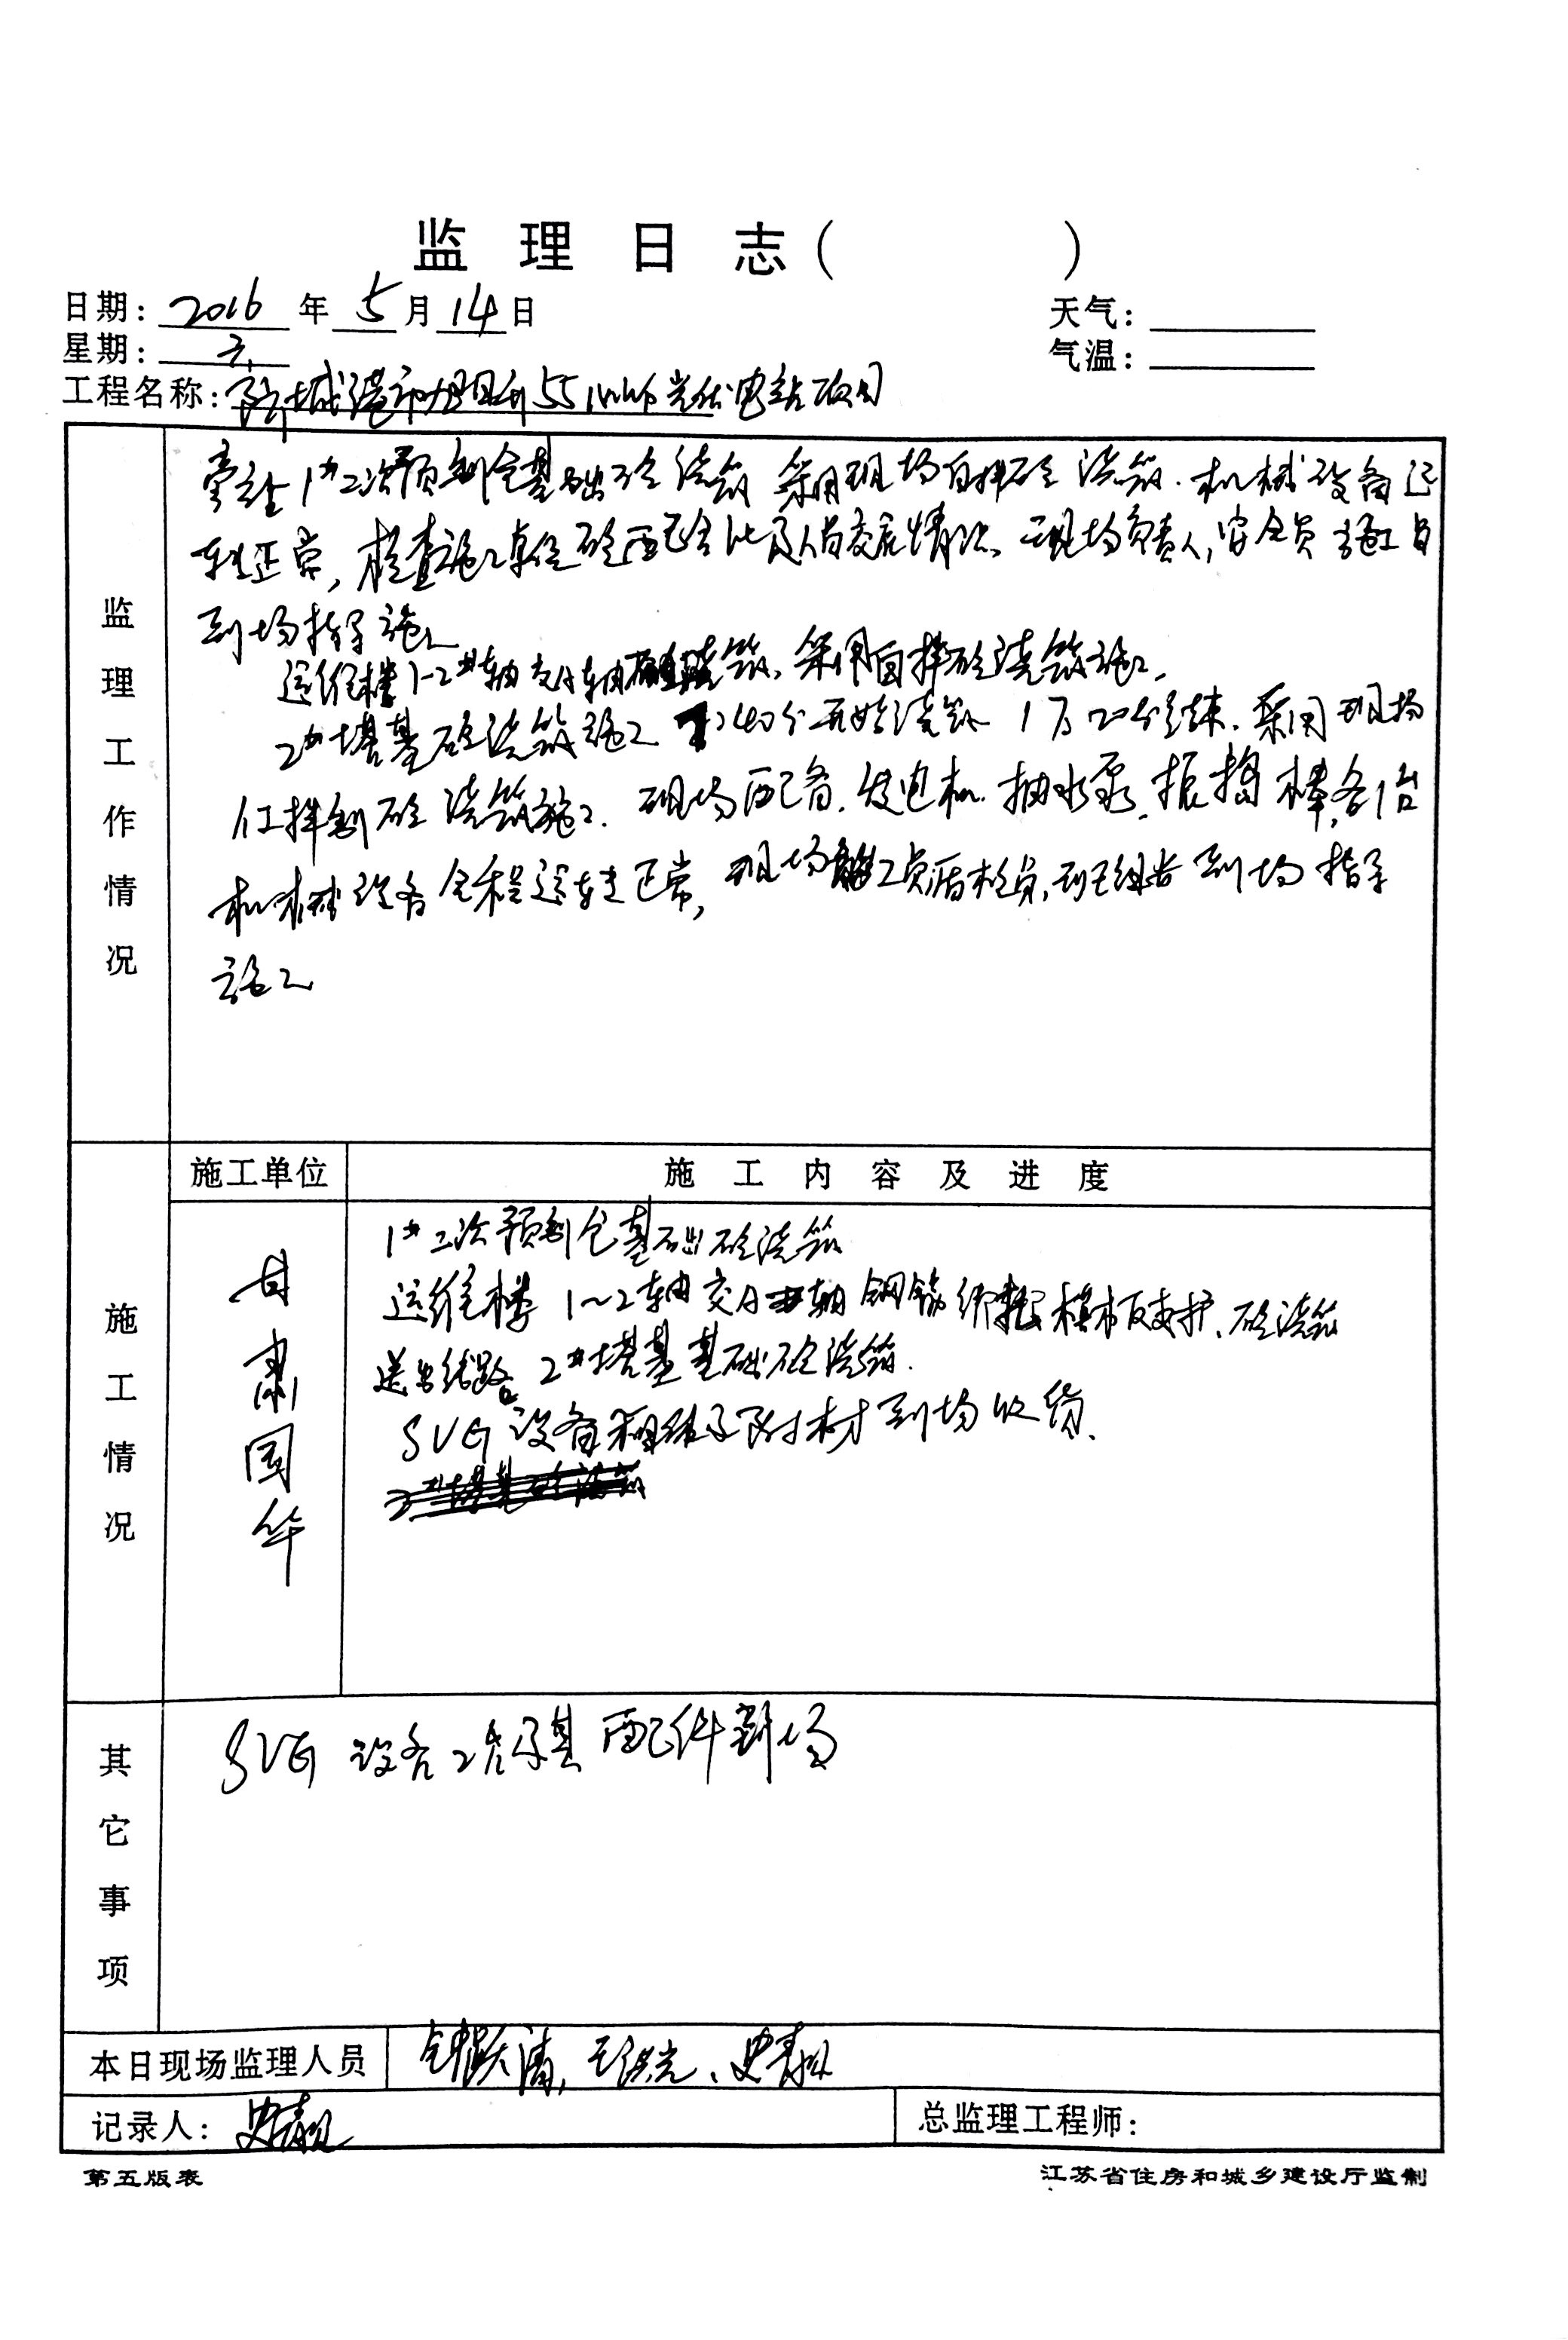 监理日志（ ）
日期：2016年5月14日
天气：
星期：六
气温：
工程名称：防城港市旭日升55MW光伏电站项目
监理工作情况
旁站1#二次预制仓基础砼浇筑 采用现场自拌砼浇筑.机械设备运
转正常,检查施工单位砼配合比及人员交底情况、现场负责人,安全员 施工员
到场指导施工
运维楼1-2#轴交A轴浇筑.采用自拌砼浇筑施工.
2#塔基砼浇筑施工 40分开始浇筑 1点20分结束.采用现场
拌制砼浇筑施工.现场配备.发电机.抽水泵.振捣棒,各1台
机械设备全程运转正常,现场施工员,质检员,到场指导
施工
施工情况
施工单位
施工内容及进度
甘肃国华
1#二次预制仓基础砼浇筑
运维楼1~2轴交A轴钢筋绑扎模板支护、砼浇筑
送出线路 2#塔基基础砼浇筑.
SVG设备附材到场收货.
其它事项
SVG设备及其配件到场
本日现场监理人员
记录人：
总监理工程师：
第五版表
江苏省住房和城乡建设厅监制